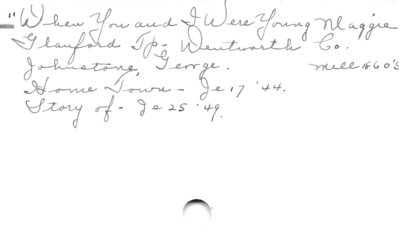 "When You and I Were Young Maggie
Glanford Tp - Wentworth Co.
Johnstone, George. Mill 1860's
Home Town - Je 17 '44.
Story of - Je 25 '49.